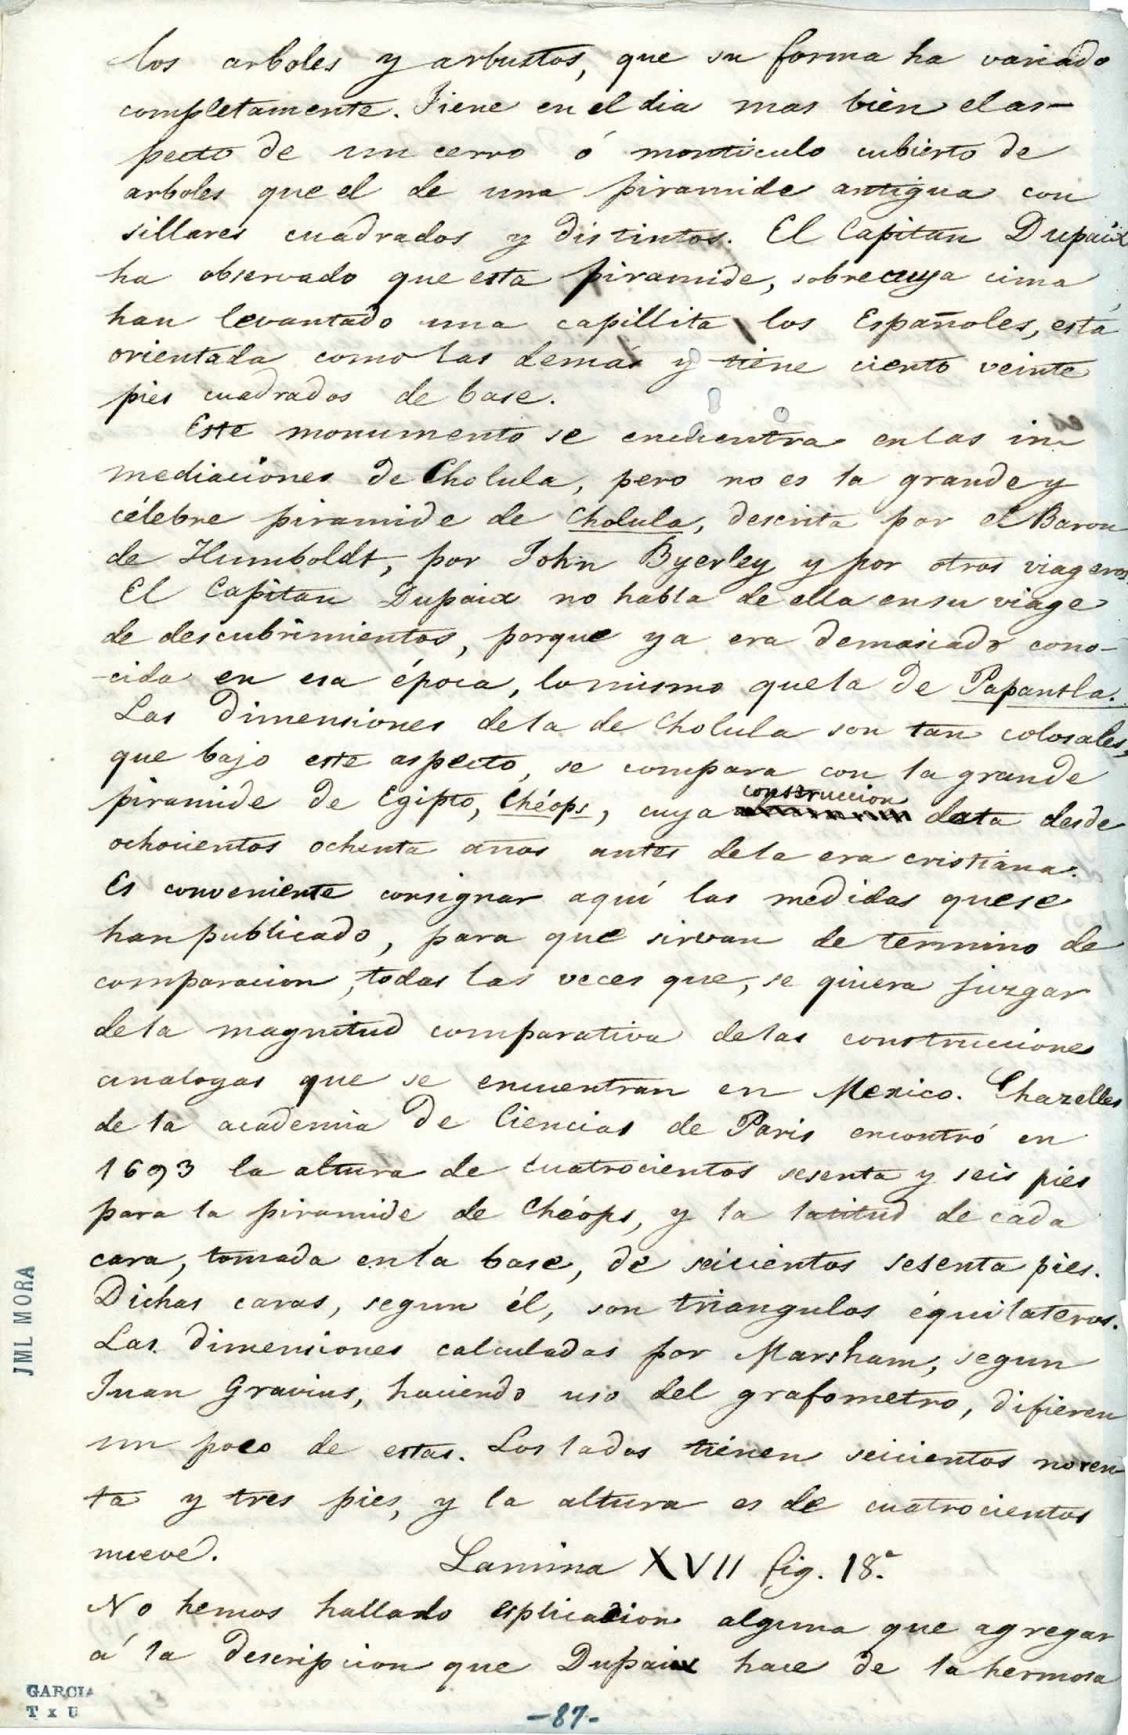 los arboles y arbustos, que su forma ha variado
completamente. Tiene en el dia mas bien el as-
pecto de un cerro ó monticulo cubierto de
arboles que el de una piramide antigua con
sillares cuadrados y distintos. El Capitan Dupaix
ha observado que esta piramide, sobre cuya cima
han levantado una capillita los Españoles, está
orientada como las demás y tiene ciento veinte
pies cuadrados de base.
Este monumento se encuentra en las in-
mediaciones de Cholula, pero no es la grande y
célebre piramide de Cholula, descrita por el Baron
de Humboldt, por John Byerley y por otros viageros.
El Capitan Dupaix no habla de ella en su viage
de descubrimientos, porque ya era demasiado cono-
-cida en esa época, lo mismo que la de Papantla.
Las dimensiones de la de Cholula son tan colosales,
que bajo este aspecto, se compara con la grande
construccion
piramide de Egipto, Chéops, cuya data desde
ochocientos ochenta años antes de la era cristiana.
Es conveniente consignar aquí las medidas que se
han publicado, para que sirvan de termino de
comparacion, todas las veces que, se quiera juzgar
de la magnitud comparativa de las construcciones
analogas que se encuentran en Mexico. Chazelles
de la academia de Ciencias de Paris encontró en
1693 la altura de cuatrocientos sesenta y seis pies
para la piramide de Chéops, y la latitud de cada
cara, tomada en la base, de seicientos sesenta pies.
Dichas caras, segun él, son triangulos équilateros.
Las dimensiones calculadas por Marsham, segun
Juan Gravius, haciendo uso del grafometro, difieren
un poco de estas. Los lados tienen seicientos noven-
ta y tres pies, y la altura es de cuatrocientos
nueve.
Lamina XVII fig. 18.ª
No hemos hallado esplicacion alguna que agregar
á la descripcion que Dupaix hace de la hermosa
JML MORA
GARCIA
T x U
-87-